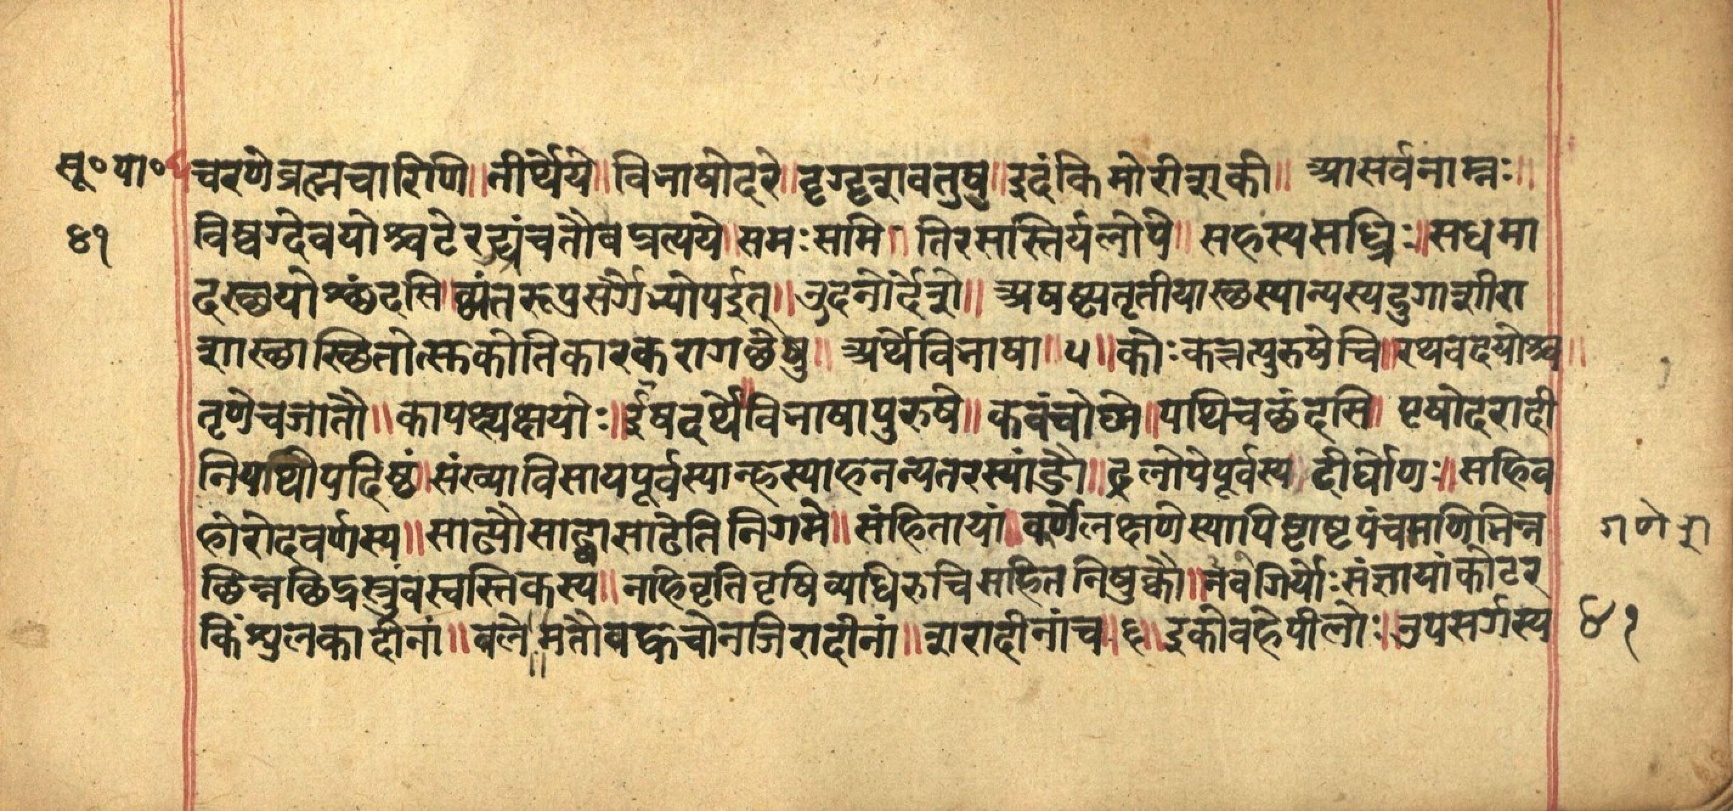 सू॰ पा॰
४१
चरणे ब्रह्मचारिणि॥ तीर्थे ये॥ विभाषोदरे॥ दृग्दृशवतुषु॥ इदंकिमोरीश्की॥ आसर्वनाम्नः॥
विष्वग्देवयोश्चटेरद्र्यंचतौवप्रत्यये॥ समः समि॥ तिरसस्तिर्यलोपे॥ सहस्य सध्रिः॥ सधमा
दस्थयोश्छंदसि॥ द्व्यंतरुपसर्गेभ्योपईत्॥ उदनोर्देशे॥ अषष्ठ्यतृतीयास्थस्यान्यस्यदुगाशीरा
शास्थास्थितोत्सुकोतिकारकरागछेषु॥ अर्थे विभाषा॥ ५॥ कोः कत्तत्पुरुषेचि॥ रथवदयोश्च॥
तृणेचजातौ॥ कापथ्यक्षयोः॥ ईषदर्थे॥ विभाषापुरुषे॥ कवंचोष्णे॥ पथिचछंदसि॥ पृषोदरादी
नियथोपदिष्टं॥ संख्याविसायपूर्वस्यान्हस्याहनन्यतरस्यांङौ॥ ढ्रलोपेपूर्वस्य दीर्घोणः॥ सहिव
होरोदवर्णस्य॥ साढ्यैसाढ्वासाढेतिनिगमे॥ संहितायां॥ कर्णेलक्षणस्याविष्टाष्टपंचमणिभिन्न
छिन्नछिद्रस्रुवस्वस्तिकस्य॥ नहिवृतिवृषिव्यधिरुचिसहितनिषुक्वौ॥ वनगिर्योः संज्ञायांकोटर
किंशुलकादीनां॥ वले॥ मतौबह्वचोनजिरादीनां॥ शरादीनांच॥ ६॥ इकोवहेपीलोः॥ उपसर्गस्य
४१